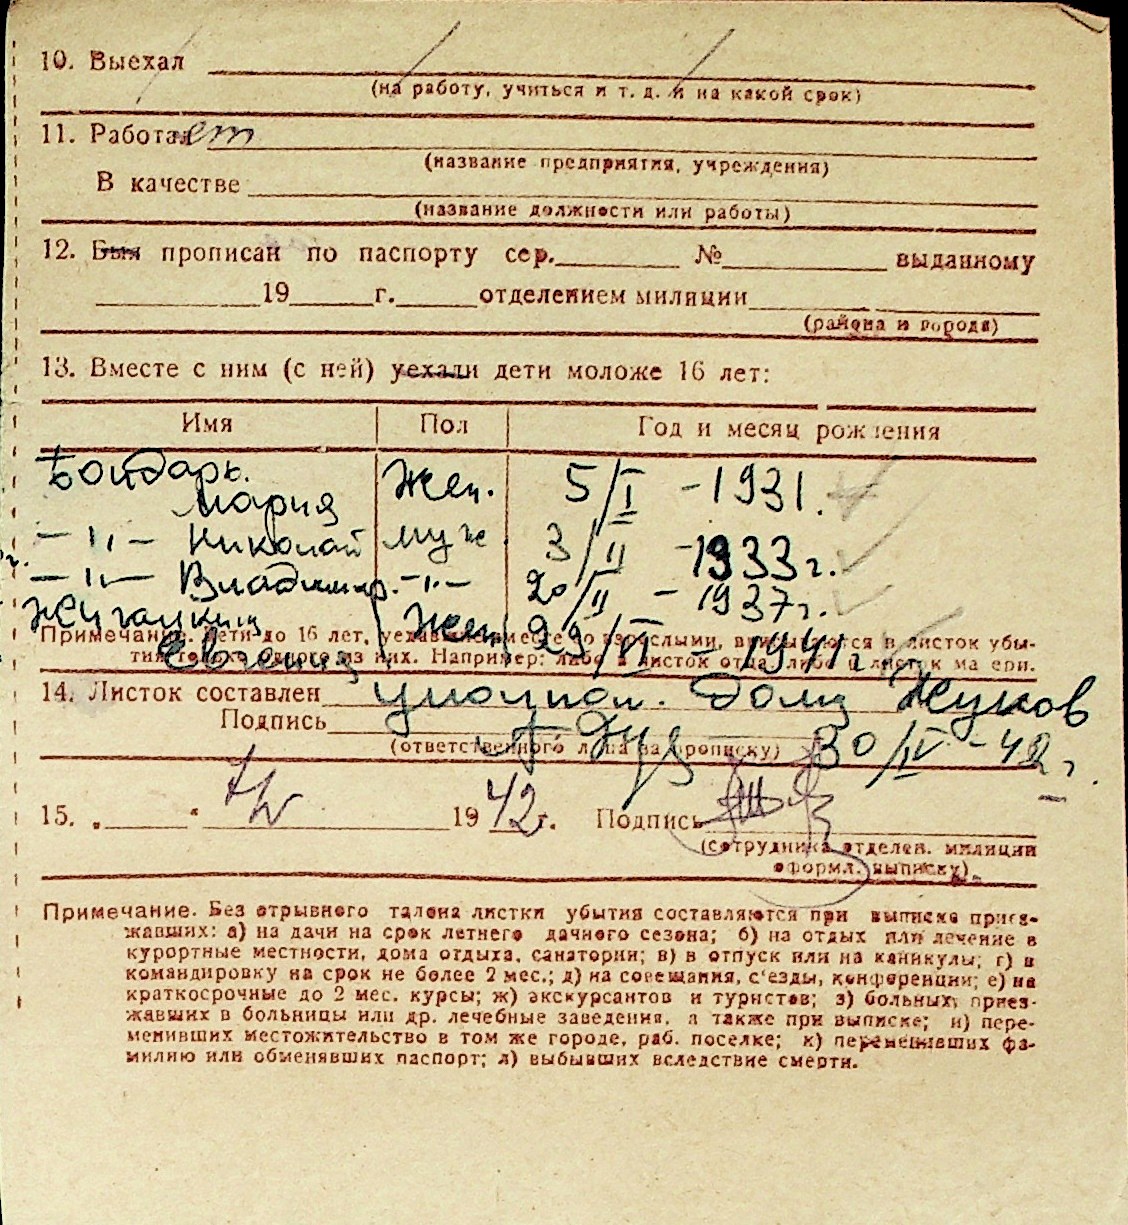 10. Выехал
(на работу, учиться и т. д. и на какой срок)
11. Работает
(название предприятия, учреждения)
В качестве
(название должности или работы)
12. Был прописан по паспорту сер. № выданному
19 г. отделением милиции
(района и города)
13. Вместе с ним (с ней) уехали дети моложе 16 лет:
Имя Пол Год и месяц рождения
Бондарь
Мария жен. 5/I - 1931.
—"— Николай муж 3/II - 1933 г.
—"— Владимир. —"— 20/II - 1937 г.
Жен 29/VI - 1941 г.
Примечание. Дети до 16 лет, уехавшие вместе со взрослыми, вписываются в листок убы-
тия только одного из них. Например: либо в листок отца, либо в листок матери.
Евгения
14. Листок составлен уполном. Дома Жуков
Подпись
(ответственного лица за прописку) 30/IV - 42 г.
15. „ “ 1942 г. Подпись
(сотрудника отделен. милиции
оформл. выписку).
Примечание. Без отрывного талона листки убытия составляются при выписке приез-
жавших: а) на дачи на срок летнего дачного сезона; б) на отдых или лечение в
курортные местности, дома отдыха, санатории; в) в отпуск или на каникулы; г) в
командировку на срок не более 2 мес.; д) на совещания, с'езды, конференции; е) на
краткосрочные до 2 мес. курсы; ж) экскурсантов и туристов; з) больных, приез-
жавших в больницы или др. лечебные заведения, а также при выписке; и) пере-
менивших местожительство в том же городе, раб. поселке; к) переменивших фа-
милию или обменявших паспорт; л) выбывших вследствие смерти.